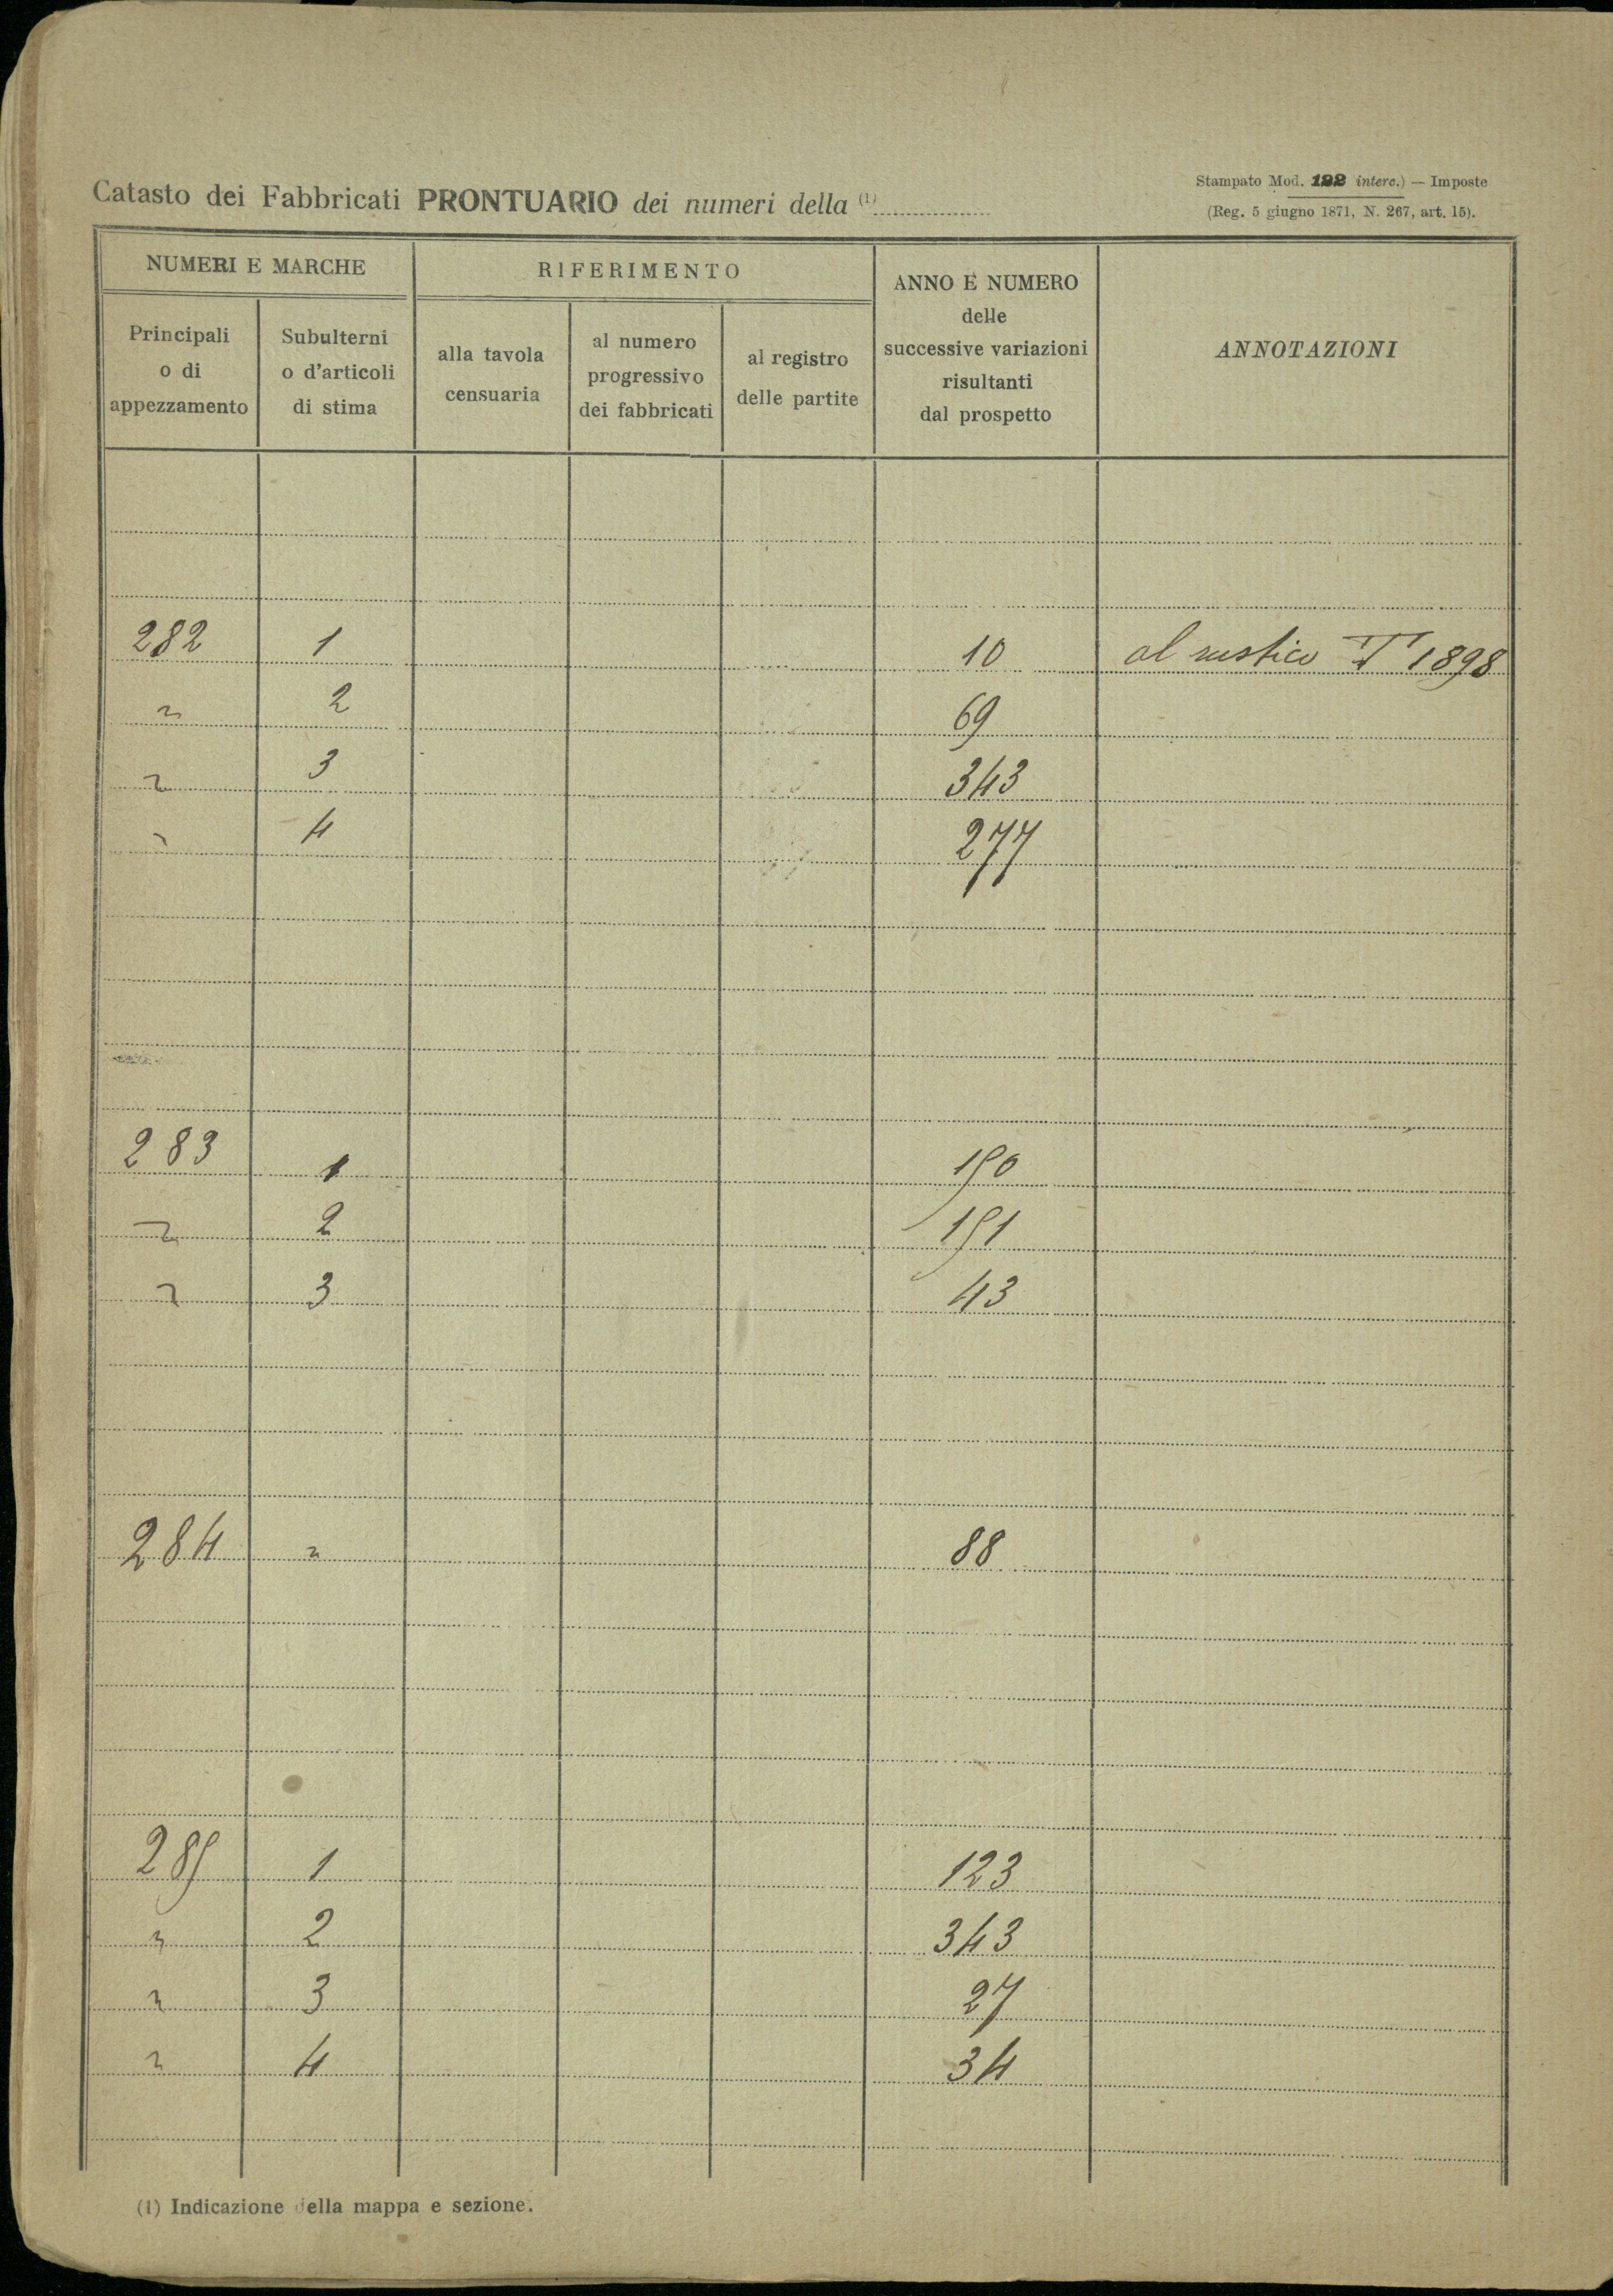 Catasto dei Fabbricati PRONTUARIO dei numeri della (1)
Stampato Mod. 122 interc.) — Imposte
(Reg. 5 giugno 1871, N. 267, art. 15).
NUMERI E MARCHE
RIFERIMENTO
ANNO E NUMERO
delle
successive variazioni
risultanti
dal prospetto
ANNOTAZIONI
Principali
o di
appezzamento
Subulterni
o d'articoli
di stima
alla tavola
censuaria
al numero
progressivo
dei fabbricati
al registro
delle partite
282 1 10 al rustico T 1898
" 2 69
" 3 343
" 4 277
283 1 150
" 2 151
" 3 43
284 " 88
285 1 123
" 2 343
" 3 27
" 4 34
(1) Indicazione della mappa e sezione.